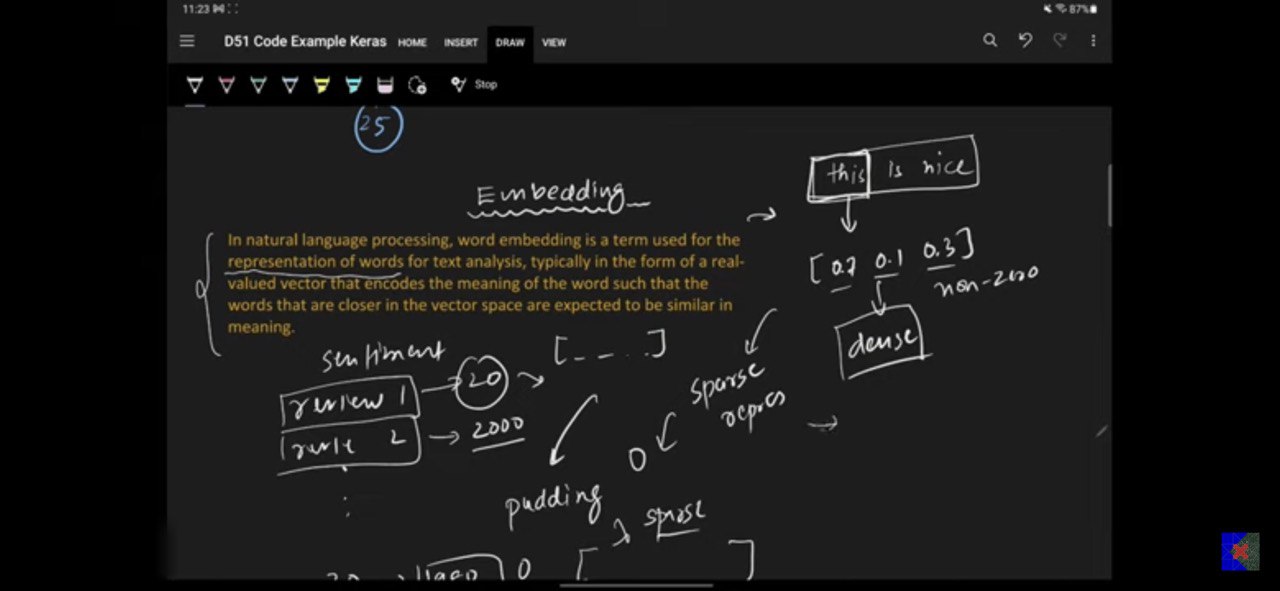 11:23
87%
D51 Code Example Keras HOME INSERT DRAW VIEW
Stop
25
this is nice
Embedding
[0.7 0.1 0.3]
non-zero
In natural language processing, word embedding is a term used for the
representation of words for text analysis, typically in the form of a real-
valued vector that encodes the meaning of the word such that the
words that are closer in the vector space are expected to be similar in
meaning.
dense
sentiment
[_ _ . . .]
sparse
repres
review 1
20
2
2000
0
pudding
sparse
0